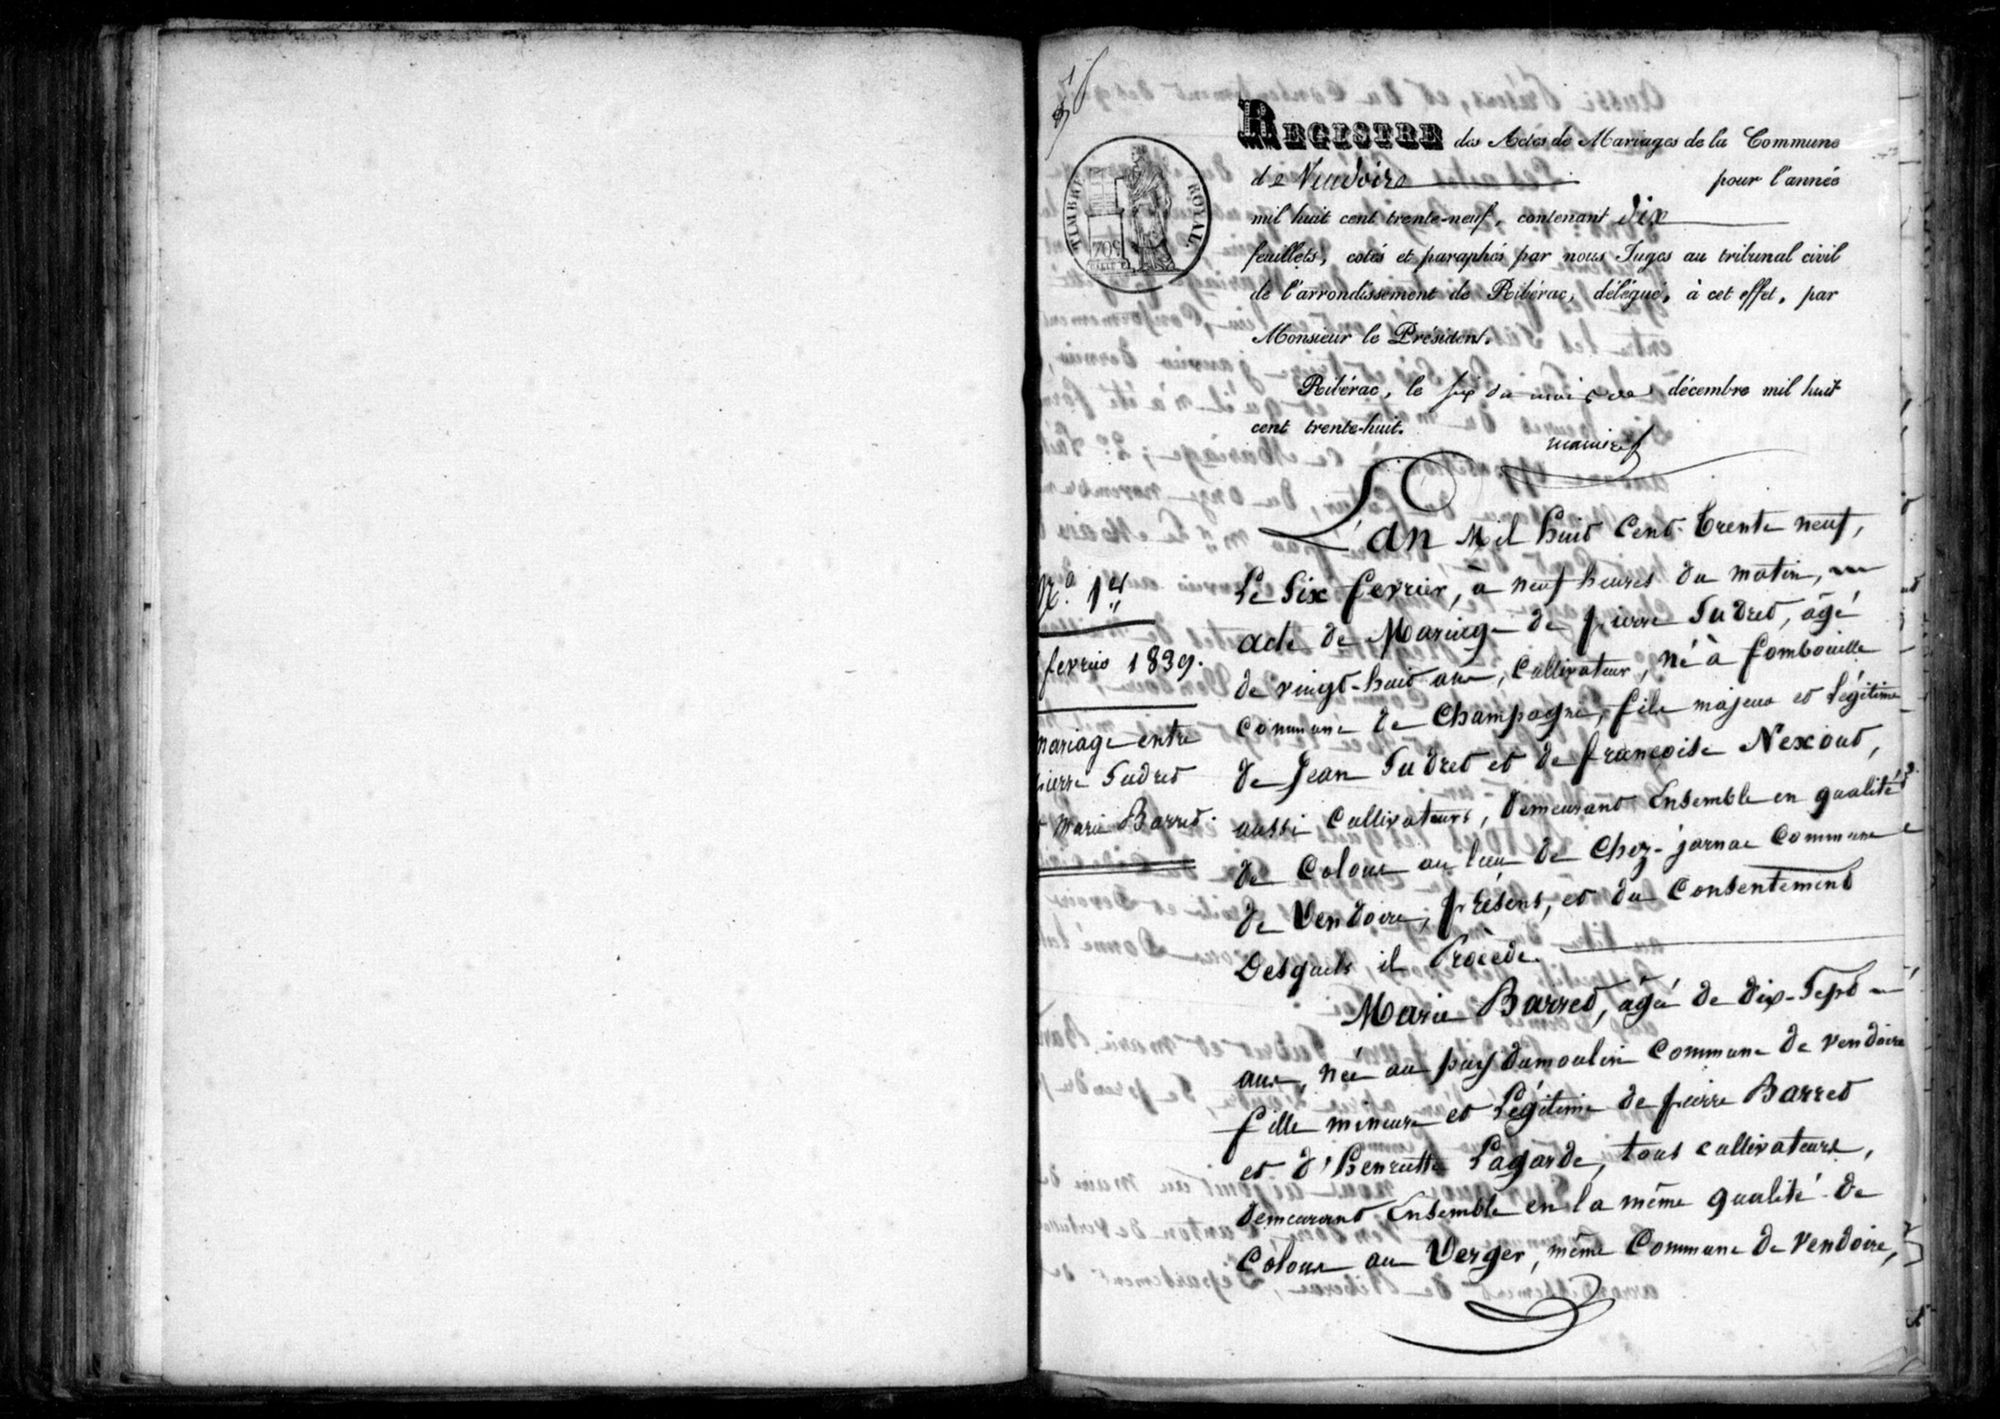 REGISTRE des Actes de Mariages de la Commune
de Vendoire pour l'année
mil huit cent trente-neuf, contenant dix
feuillets, cotés et paraphés par nous Juges au tribunal civil
de l'arrondissement de Ribérac, délégué, à cet effet, par
Monsieur le Président.
Ribérac, le six du mois de décembre mil huit
cent trente-huit.
TIMBRE ROYAL
L'an Mil huit Cent trente neuf,
Le Six fevrier, à neuf heures du matin,
acte de Mariage de pierre Tudret, âgé
de vingt-huit ans, Cultivateur, Né à fombouille
Commune de Champagne, fils majeur et légitime
de Jean Tudret et de françoise Nexout,
aussi Cultivateurs, Demeurant Ensemble en qualité
de Colons au lieu de Chez-jarnac Commune
de Vendoire, présens, et du Consentement
Desquels il Procède.
Marie Barret, âgée de dix-Sept
ans, née au puy dumoulin Commune de vendoire
fille mineure et Légitime de pierre Barret
et d'henriette Lagarde, tous cultivateurs,
demeurant Ensemble en la même qualité de
Colons au Verger, même Commune de Vendoire,
N.o 1er
fevrier 1839.
mariage entre
pierre Tudret
Marie Barret.